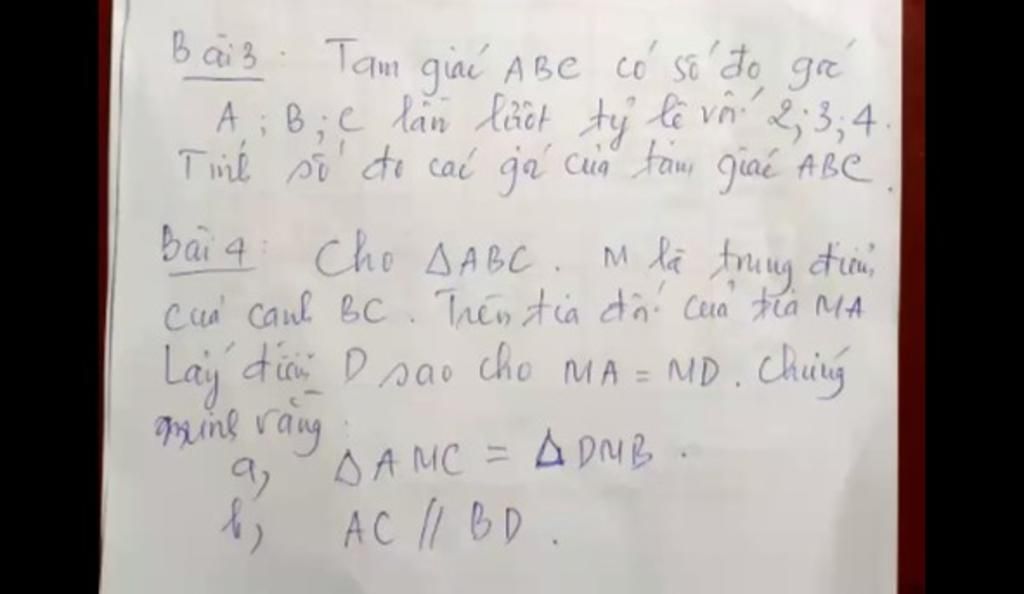 Bài 3: Tam giác ABC có số đo góc
A; B; C lần lượt tỷ lệ với 2; 3; 4.
Tính số đo các góc của tam giác ABC.
Bài 4: Cho ΔABC. M là trung điểm
của cạnh BC. Trên tia đối của tia MA
Lấy điểm D sao cho MA = MD. Chứng
minh rằng:
a, ΔAMC = ΔDMB.
b, AC // BD.